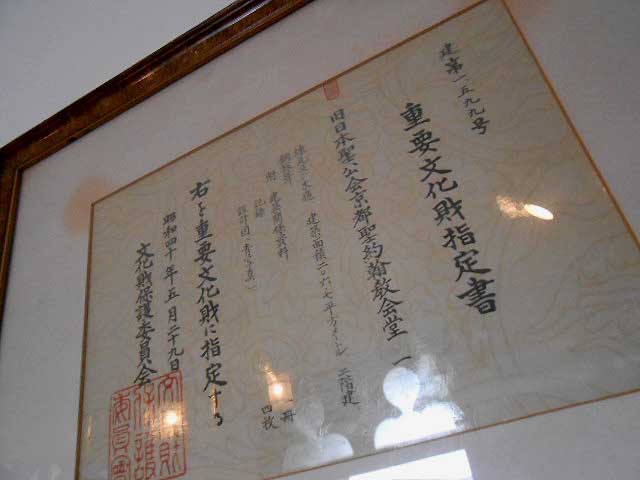 建第一五九九号
重要文化財指定書
旧日本聖公会京都聖約翰教会堂 一
煉瓦造及木造 建築面積二〇六・七平方メートル 二階建
銅板葺
附 建築関係資料
記録 一冊
設計図(青写真) 四枚
右を重要文化財に指定する
昭和四十年五月二十九日
文化財保護委員会